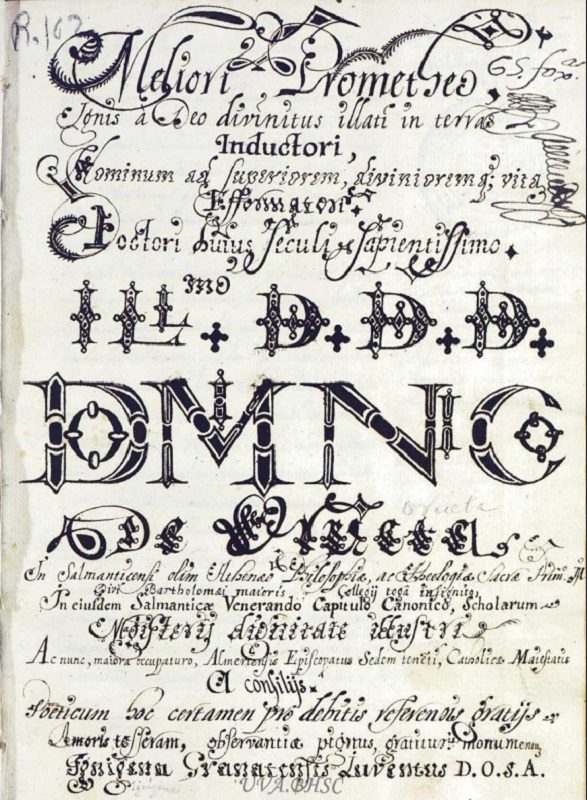 R. 162
Meliori Prometheo,
Ignis a Deo divinitus illati in terras
Inductori,
Hominum ad superiorem, divinioremq; vitã
Efformatori.
Doctori huius seculi sapientissimo.
ILL.mo D.D.D.
DMNC
De Urueta
Urueta
In Salmanticensi olim Athenæo Philosophiæ, ac Theologiæ Sacræ Prim. M
Divi Bartholomæi maioris Collegij togã insignito,
In eiusdem Salmanticæ Venerando Capitulo Canonico, Scholarum
Magisterij dignitate illustri
Ac nunc, maiora occupaturo, Almeriensis Episcopatus Sedem tenenti, Catholicæ Maiestatis
A consilijs.
Poeticum hoc certamen pro debitis referendis gratijs
Amoris tesseram, observantiæ pignus, gratitud. monumentum
Ignigena Granatensis Iuventus D.O.S.A.
Ignigena
UVA.BHSC